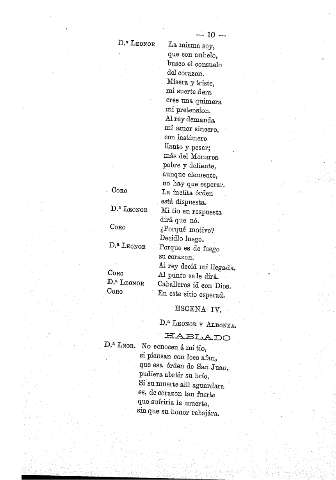 — 10 —
D.ª LEONOR La misma soy,
que con anhelo,
busco el consuelo
del corazon.
Mísera y triste,
mi suerte fiera
cree una quimera
mi pretension.
Al rey demanda
mi amor sincero,
con lastimero
llanto y pesar;
más del Monarca
pobre y doliente,
aunque clemente,
no hay que esperar.
CORO La ínclita órden
está dispuesta.
D.ª LEONOR Mi tio en respuesta
dirá que nó.
CORO ¿Porqué motivo?
Decidlo luego.
D.ª LEONOR Porque es de fuego
su corazon.
Al rey decid mi llegada.
CORO Al punto se le dirá.
D.ª LEONOR Caballeros id con Dios.
CORO En este sitio esperad.
ESCENA IV.
D.ª LEONOR Y ALDONZA.
HABLADO
D.ª LEON. No conocen á mi tio,
si piensan con loco afan,
que esa órden de San Juan,
pudiera abatir su brío.
Si su muerte allí aguardara
es, de corazon tan fuerte
que sufriria la muerte,
sin que su honor rebajára.